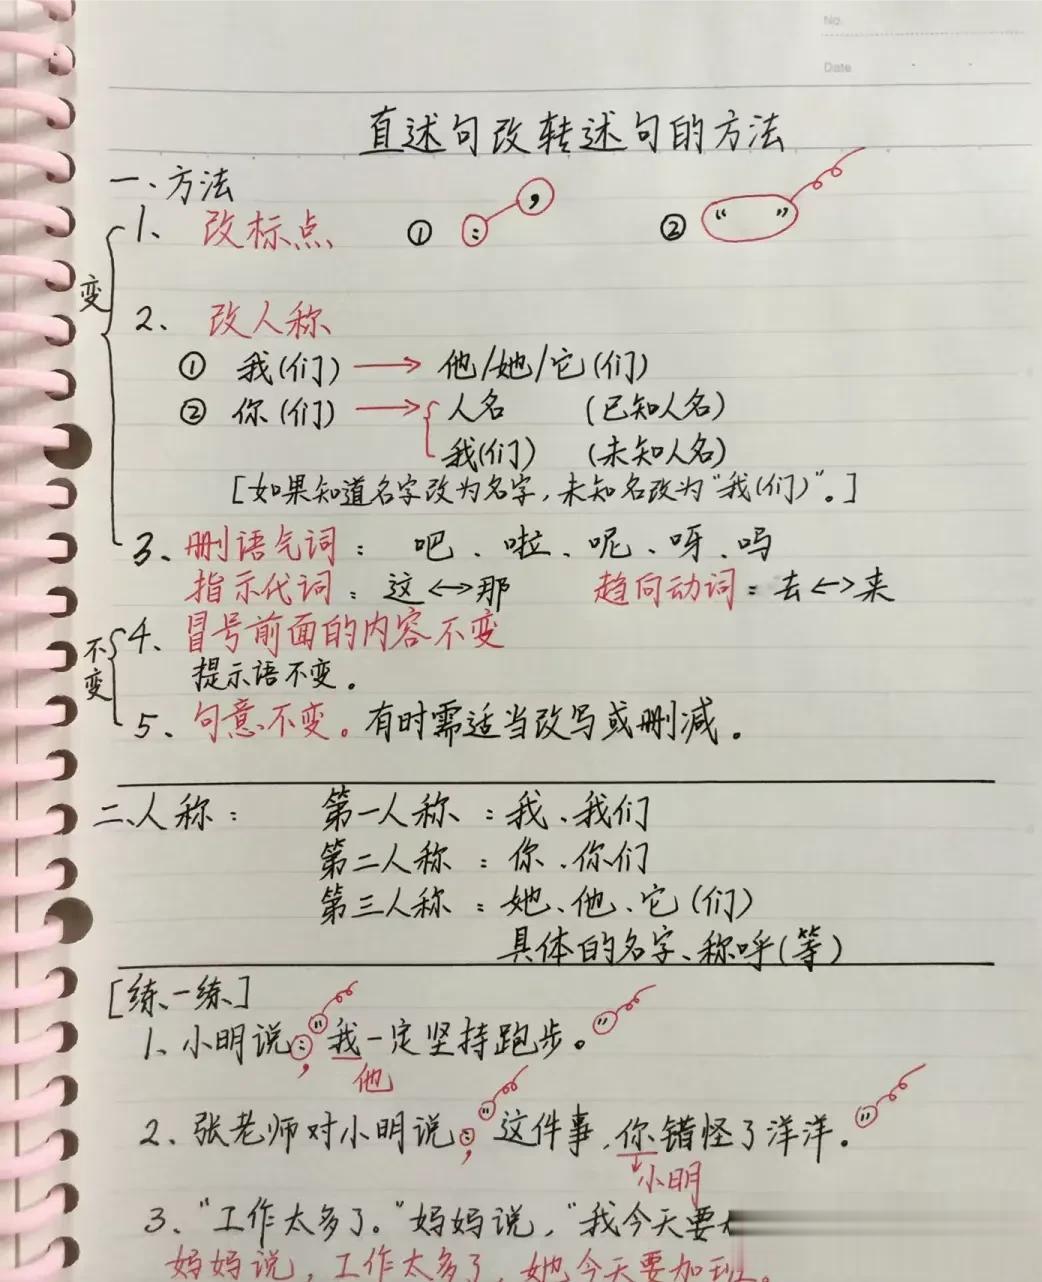 No.
Date
直述句改转述句的方法
一、方法
变
1、改标点 ① : , ② “ ”
2、改人称
① 我(们) → 他/她/它(们)
② 你(们) → 人名 (已知人名)
我(们) (未知人名)
[如果知道名字改为名字,未知名改为“我(们)”。]
3、删语气词: 吧、啦、呢、呀、吗
指示代词: 这↔那 趋向动词: 去↔来
不变
4、冒号前面的内容不变
提示语不变。
5、句意不变。有时需适当改写或删减。
二、人称: 第一人称:我、我们
第二人称:你、你们
第三人称:她、他、它(们)
具体的名字、称呼(等)
[练一练]
1、小明说:“我一定坚持跑步。”
, 他
2、张老师对小明说:“这件事,你错怪了洋洋。”
, 小明
3、“工作太多了。”妈妈说,“我今天要
妈妈说,工作太多了,她今天要加班。